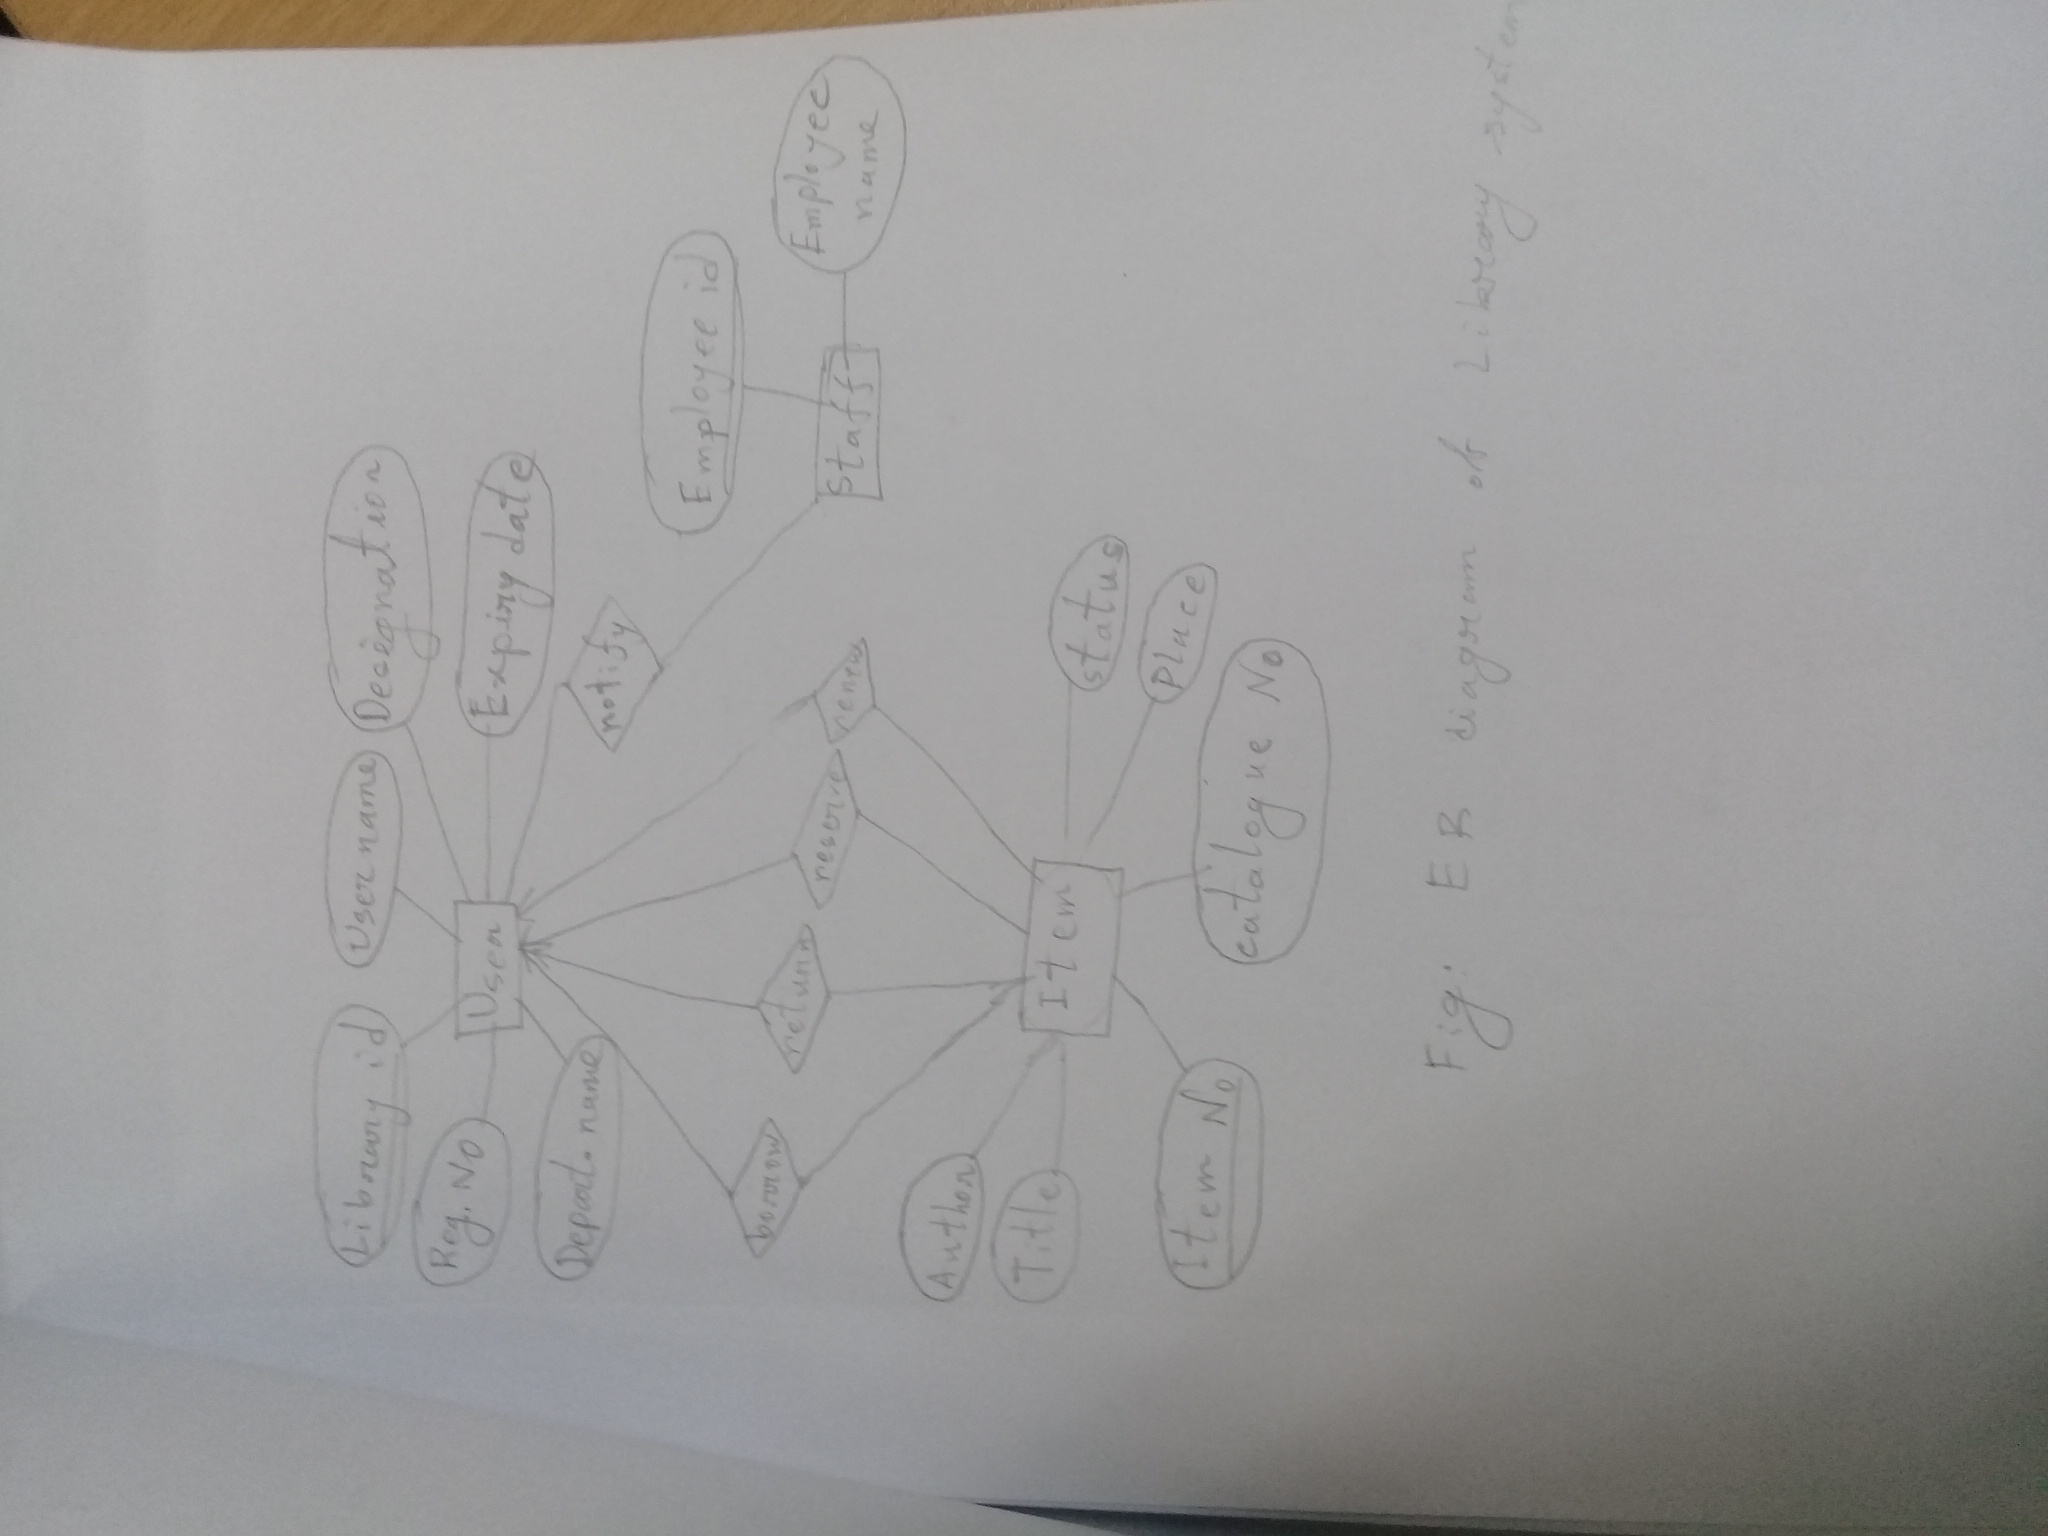 Library id
User name
Designation
Reg. No
User
Expiry date
Depart. name
notify
Employee id
borrow
return
reserve
renew
Staff
Employee
name
Author
Title
Item
status
Place
Item No
catalogue No
Fig: ER diagram of Library system